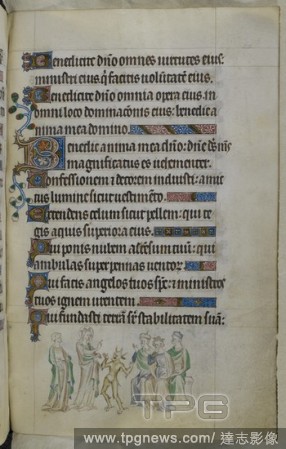 Benedicite dño omnes virtutes eius:
ministri eius q̃ facitis voluntatē eius.
Benedicite dño omnia opera eius: in
omni loco dominacõnis eius: benedic a
nima mea domino.
Benedic anima mea dño: dñe
magnificatus es vehementer.
Confessionem ⁊ decorem induisti: amic
tus lumine sicut vestimēto.
Extendens celum sicut pellem: qui te
gis aquis superiora eius.
Qui ponis nubem ascēsum tuū: qui
ambulas super pennas ventoꝝ.
Qui facis angelos tuos sp̄c: ⁊ ministros
tuos ignem urentem.
Qui fundasti terrā sr̄ stabilitatem suā:
TPG
www.tpgnews.com/ 達志影像